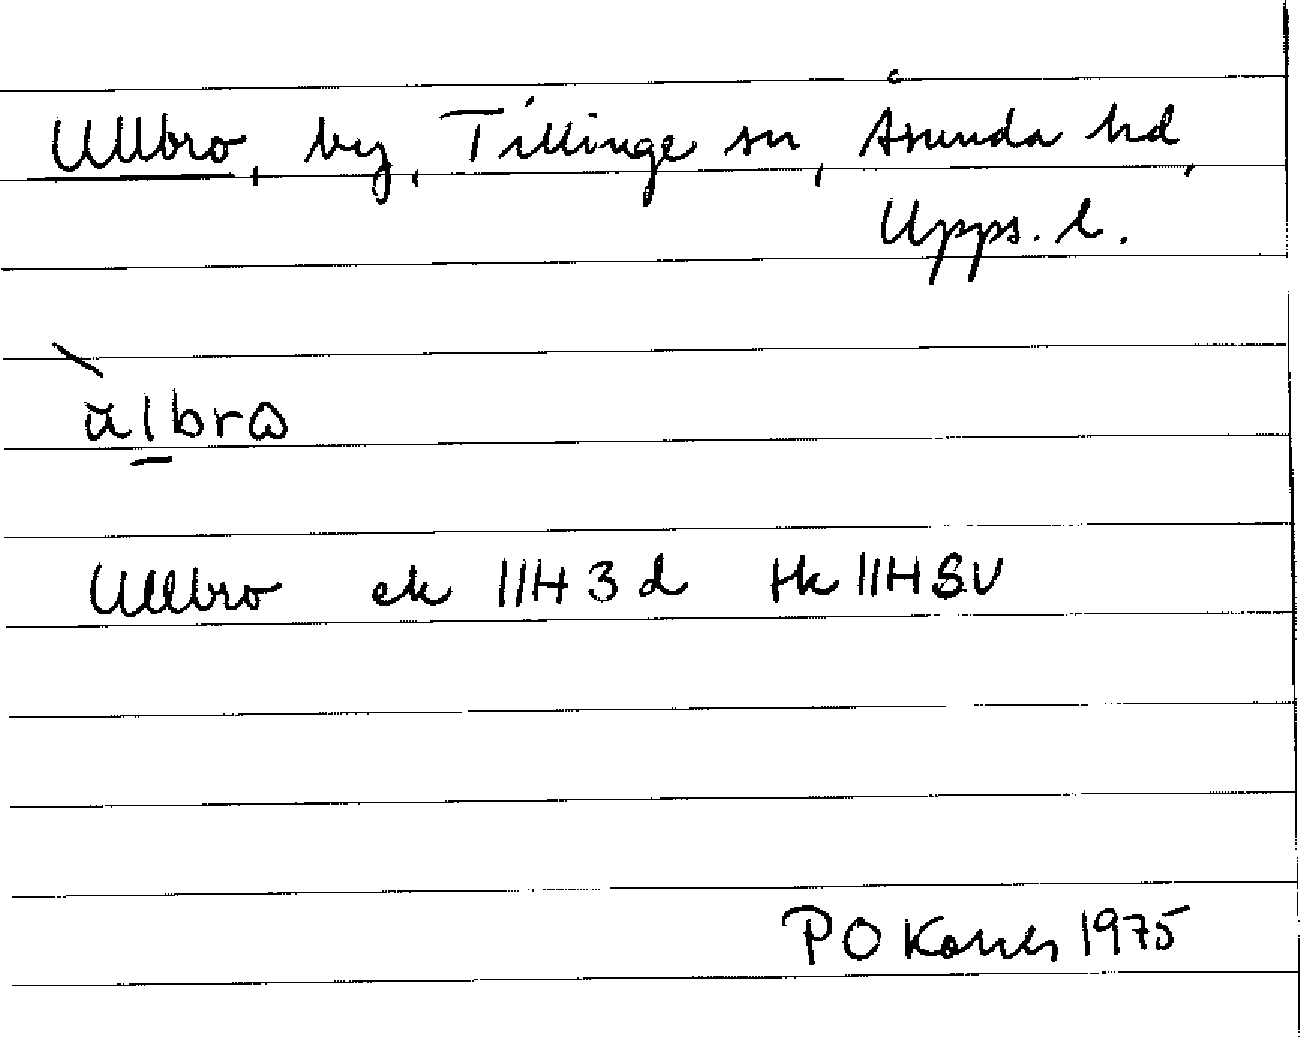 Ullbro, by, Tillinge sn, Åsunda hd,
Upps. l.
Ullbro ek 11H 3d Hk 11H SV
P O 1975